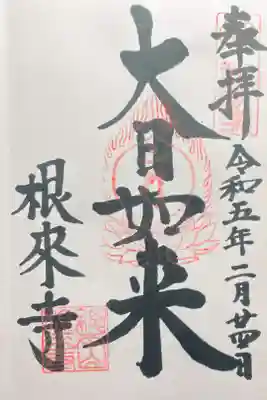 奉拝
令和五年二月廿四日
大日如来
根來寺